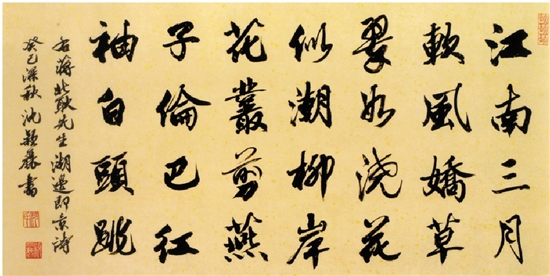 江南三月
軟風嬌草
翠如澆花
似潮柳岸
花叢剪燕
子倫巴紅
袖白頭跳
右蔣北耿先生湖邊即景詩
癸巳深秋沈書